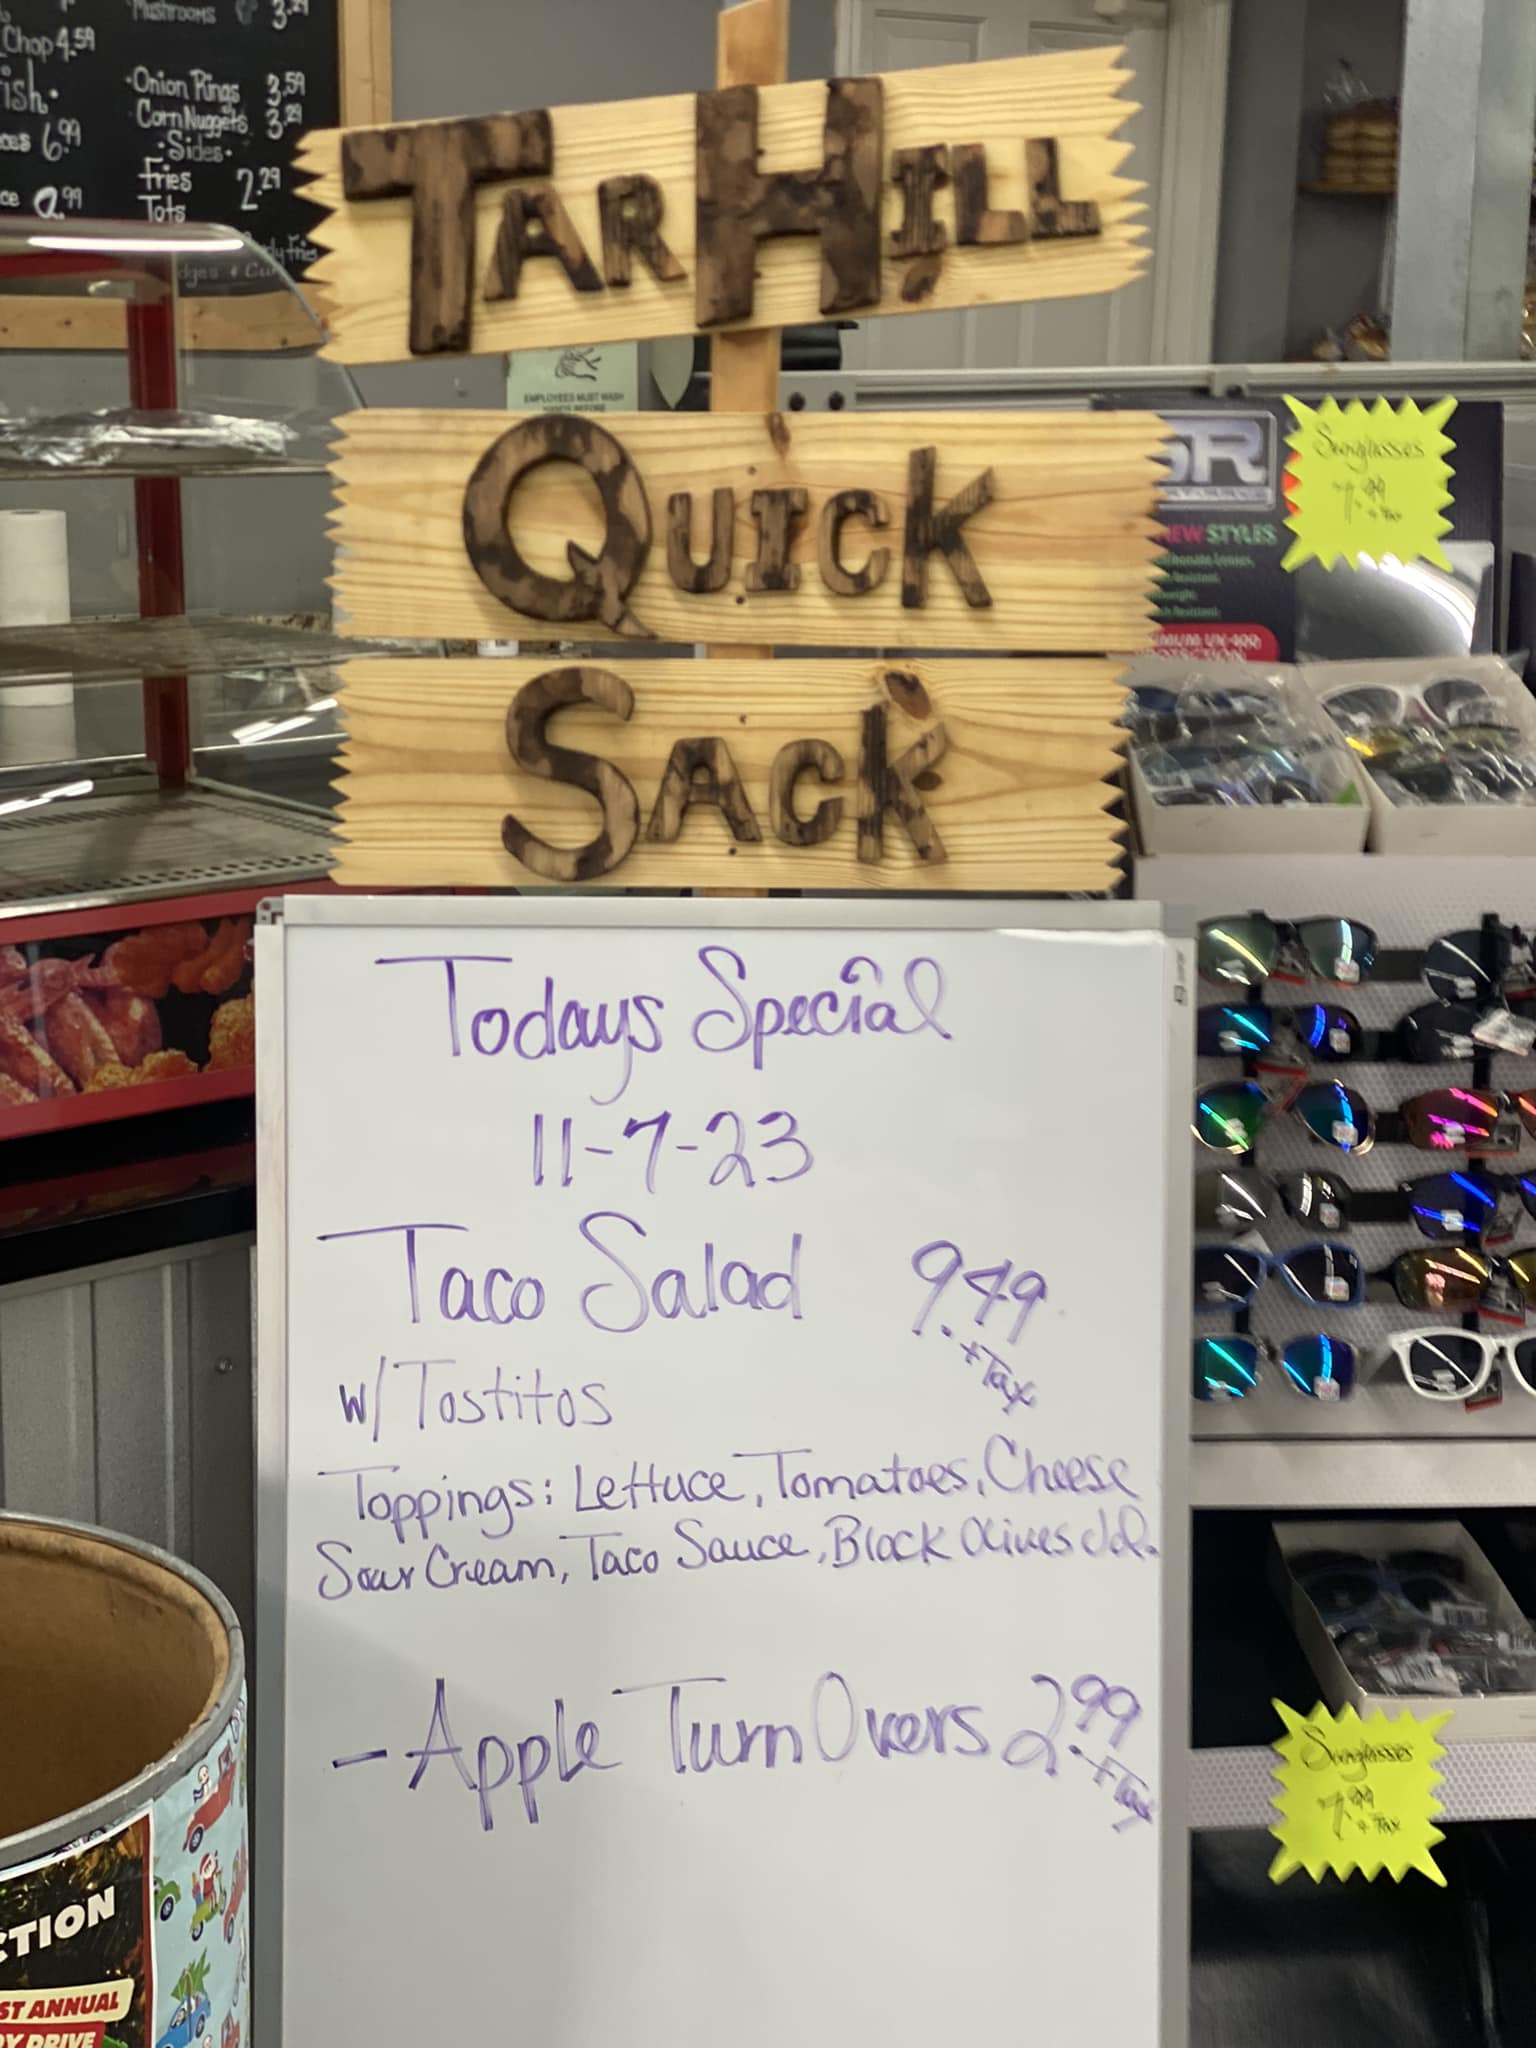 Mushrooms 3.29
Chop 4.59
Onion Rings 3.59
Corn Nuggets 3.29
6.99
• Sides •
Fries 2.29
Tots
TAR HILL
EMPLOYEES MUST WASH
QUICK
SACK
NEW STYLES
Sunglasses
7.99
+ Tax
Todays Special
11-7-23
Taco Salad 9.49
+Tax
w/ Tostitos
Toppings: Lettuce, Tomatoes, Cheese
Sour Cream, Taco Sauce, Black Olives
- Apple TurnOvers 2.99
+Tax
Sunglasses
7.99
+ Tax
CTION
ST ANNUAL
Y DRIVE